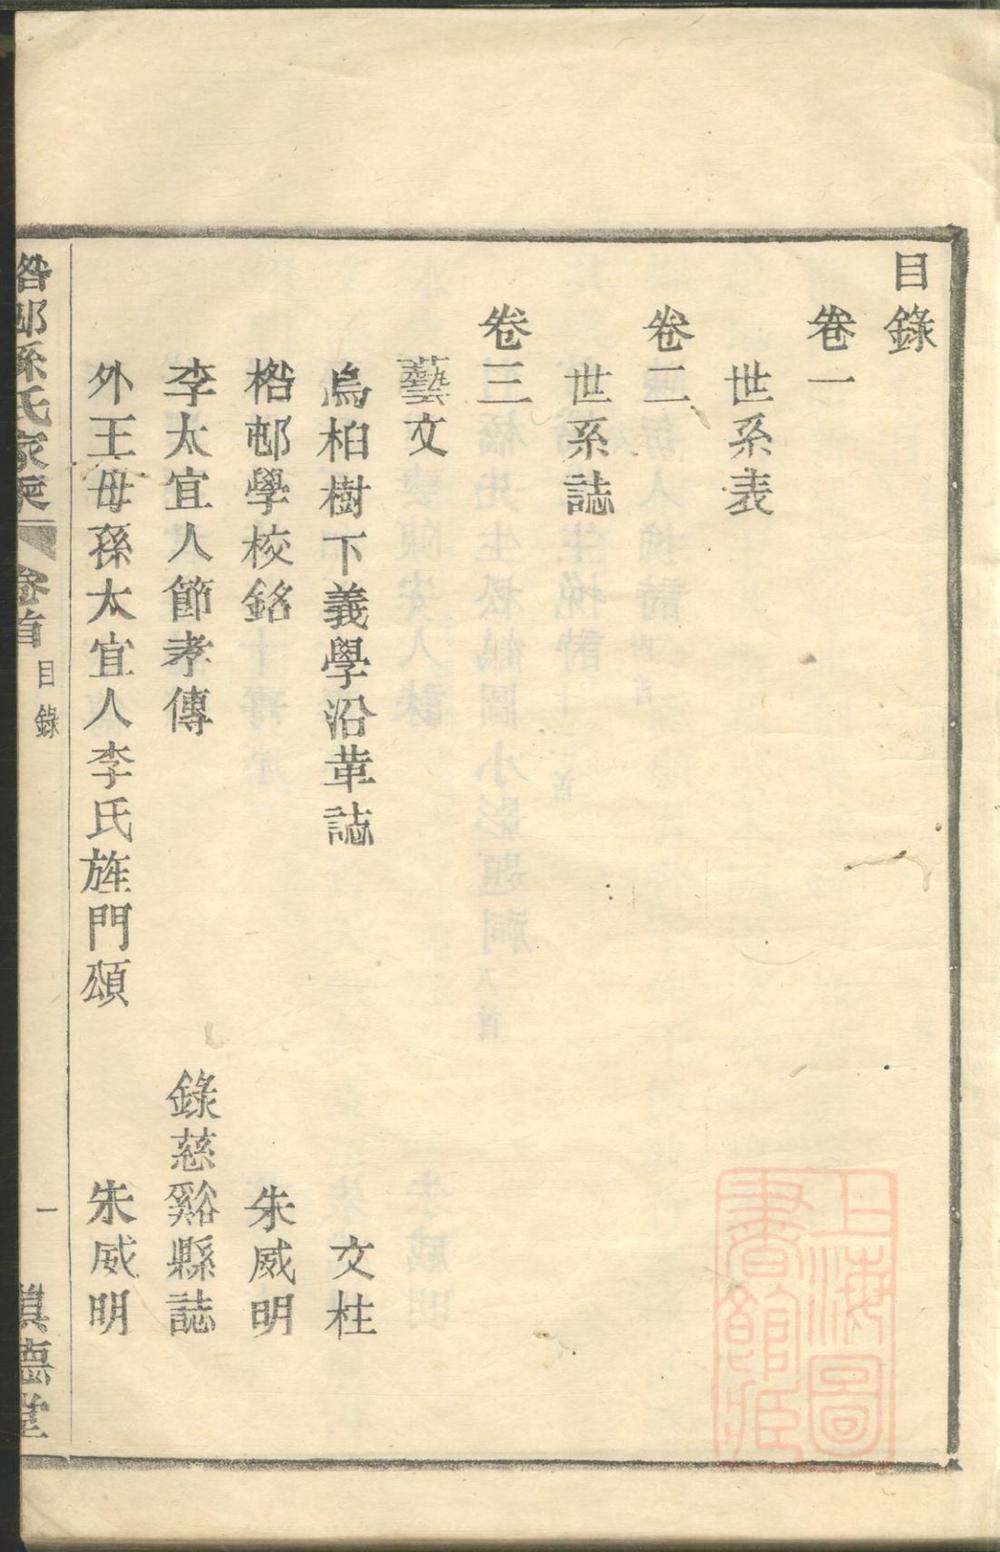 目錄
卷一
世系表
卷二
世系誌
卷三
藝文
烏桕樹下義學沿革誌 文柱
楁邨學校銘 朱威明
李太宜人節孝傳 錄慈谿縣誌
外王母孫太宜人李氏旌門頌 朱威明
邨孫氏家乘 卷首 目錄 一 眞德堂
上海圖書館藏